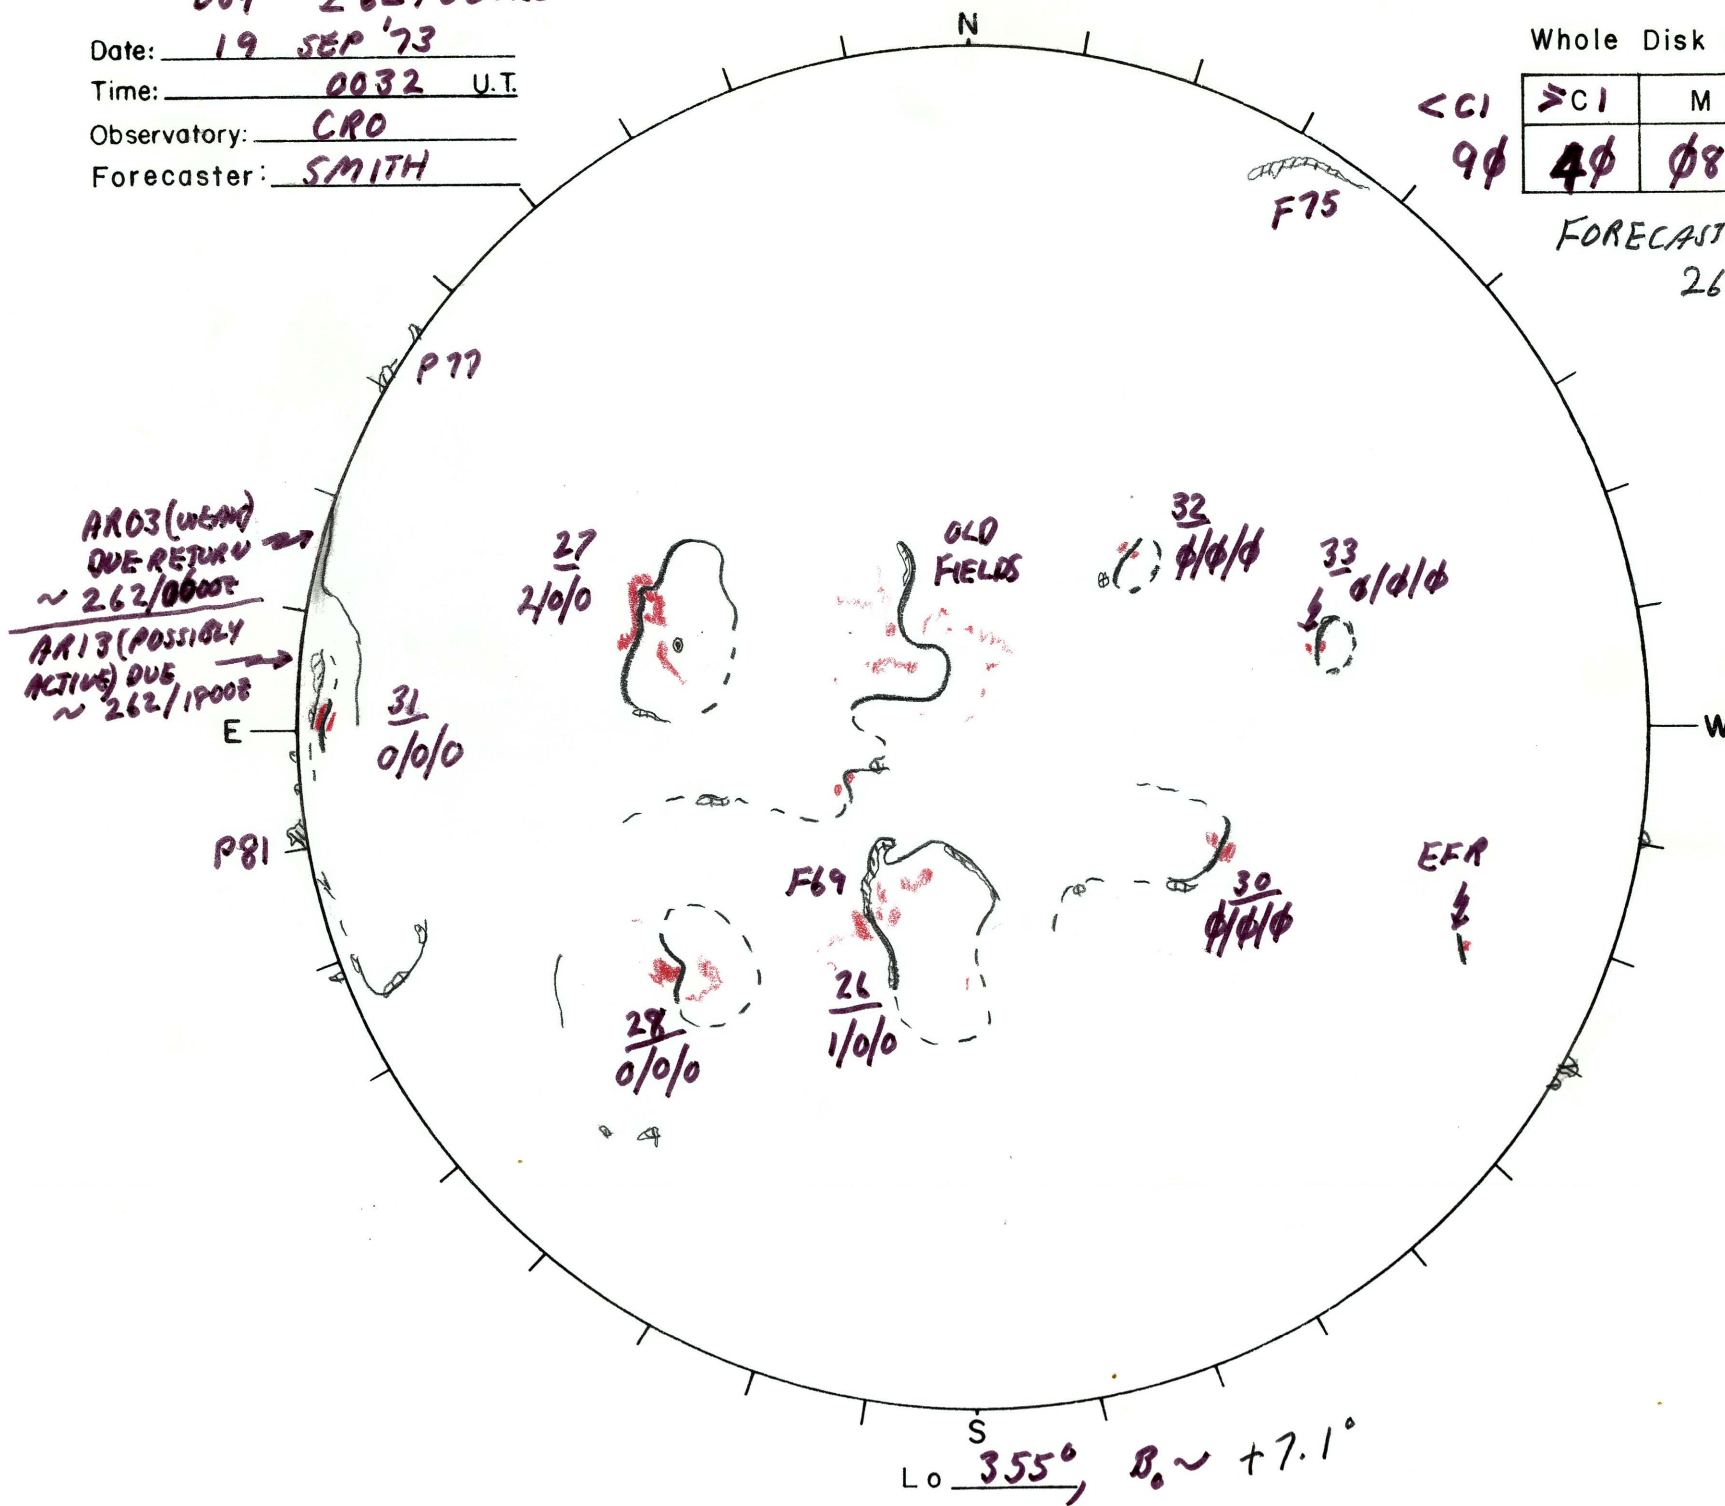 Date: 19 SEP '73
Time: 0032 U.T.
Observatory: CRO
Forecaster: SMITH
N
Whole Disk
<C1 ≥C1 M
9φ 4φ φ8
FORECAST
26
F75
P77
AR03 (WEAK)
DUE RETURN
~ 262/0000Z
AR13 (POSSIBLY
ACTIVE) DUE
~ 262/1800Z
27
2/0/0
OLD
FIELDS
32
φ/φ/φ
33
φ/φ/φ
31
0/0/0
E
W
P81
F69
30
φ/φ/φ
EFR
26
1/0/0
28
0/0/0
S
Lo 355°, B₀ ~ +7.1°